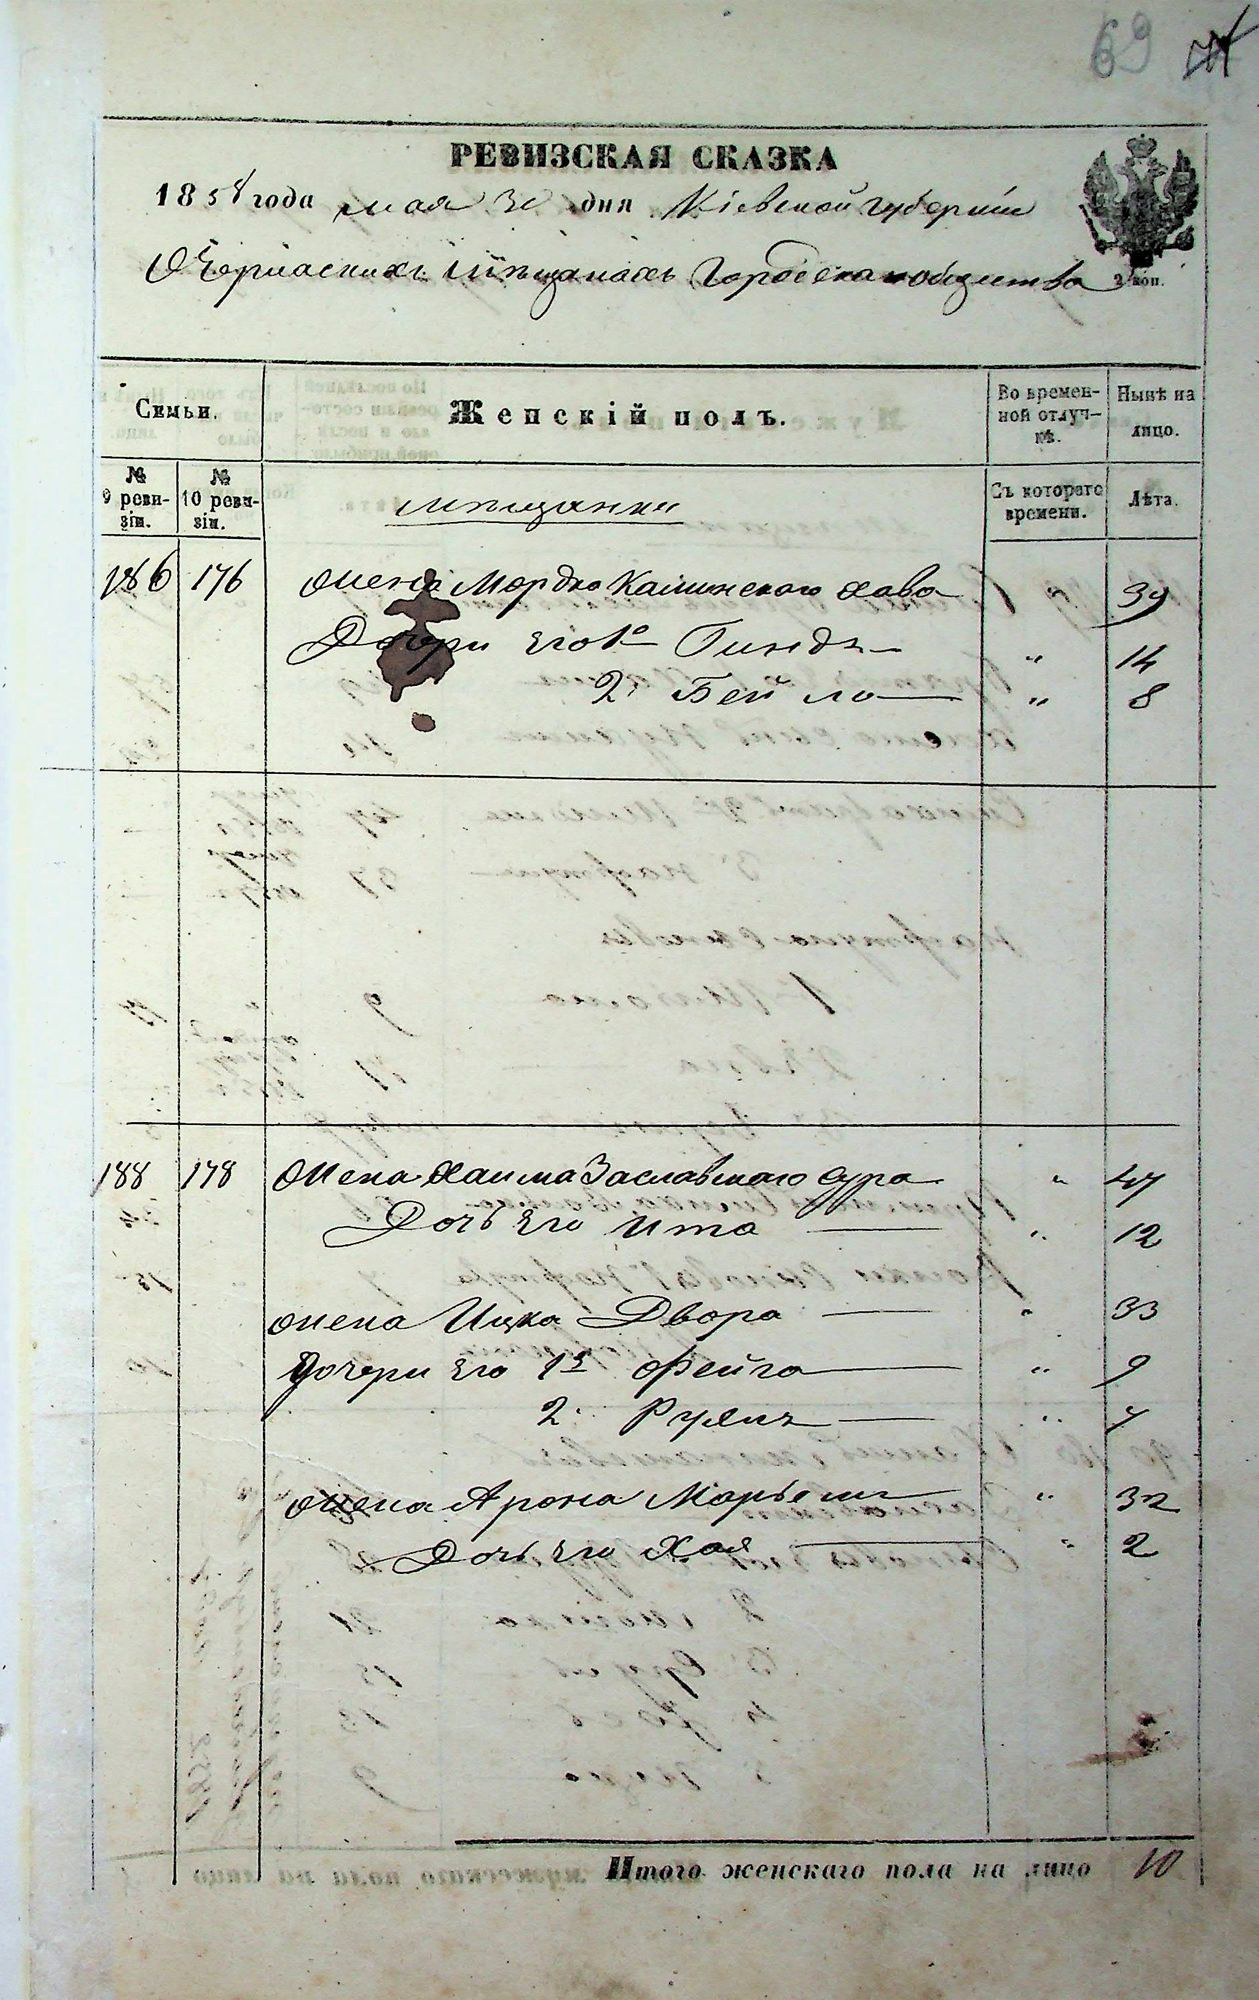 69
РЕВИЗСКАЯ СКАЗКА
1858 года мая 30 дня Кіевской губерніи
О Черкаскихъ мѣщанахъ Городскаго общества
2 коп.
Семьи.
Женскій полъ.
Во времен-
ной отлуч-
кѣ.
Нынѣ на
лицо.
№
9 реви-
зіи.
№
10 реви-
зіи.
мѣщанки
Съ котораго
времени.
Лѣта.
186 176 Жена Мордко Каминскаго Хава 39
Дочери его 1я Гиндя " 14
2я Бейла " 8
188 178 Жена Хаима Заславскаго Сура " 47
Дочь его Ита " 12
Жена Ицка Двора " 33
Дочери его 1я Фейга " 9
2я Рухля " 7
Жена Арона Марьям " 32
Дочь его Хая " 2
Итого женскаго пола на лицо 10